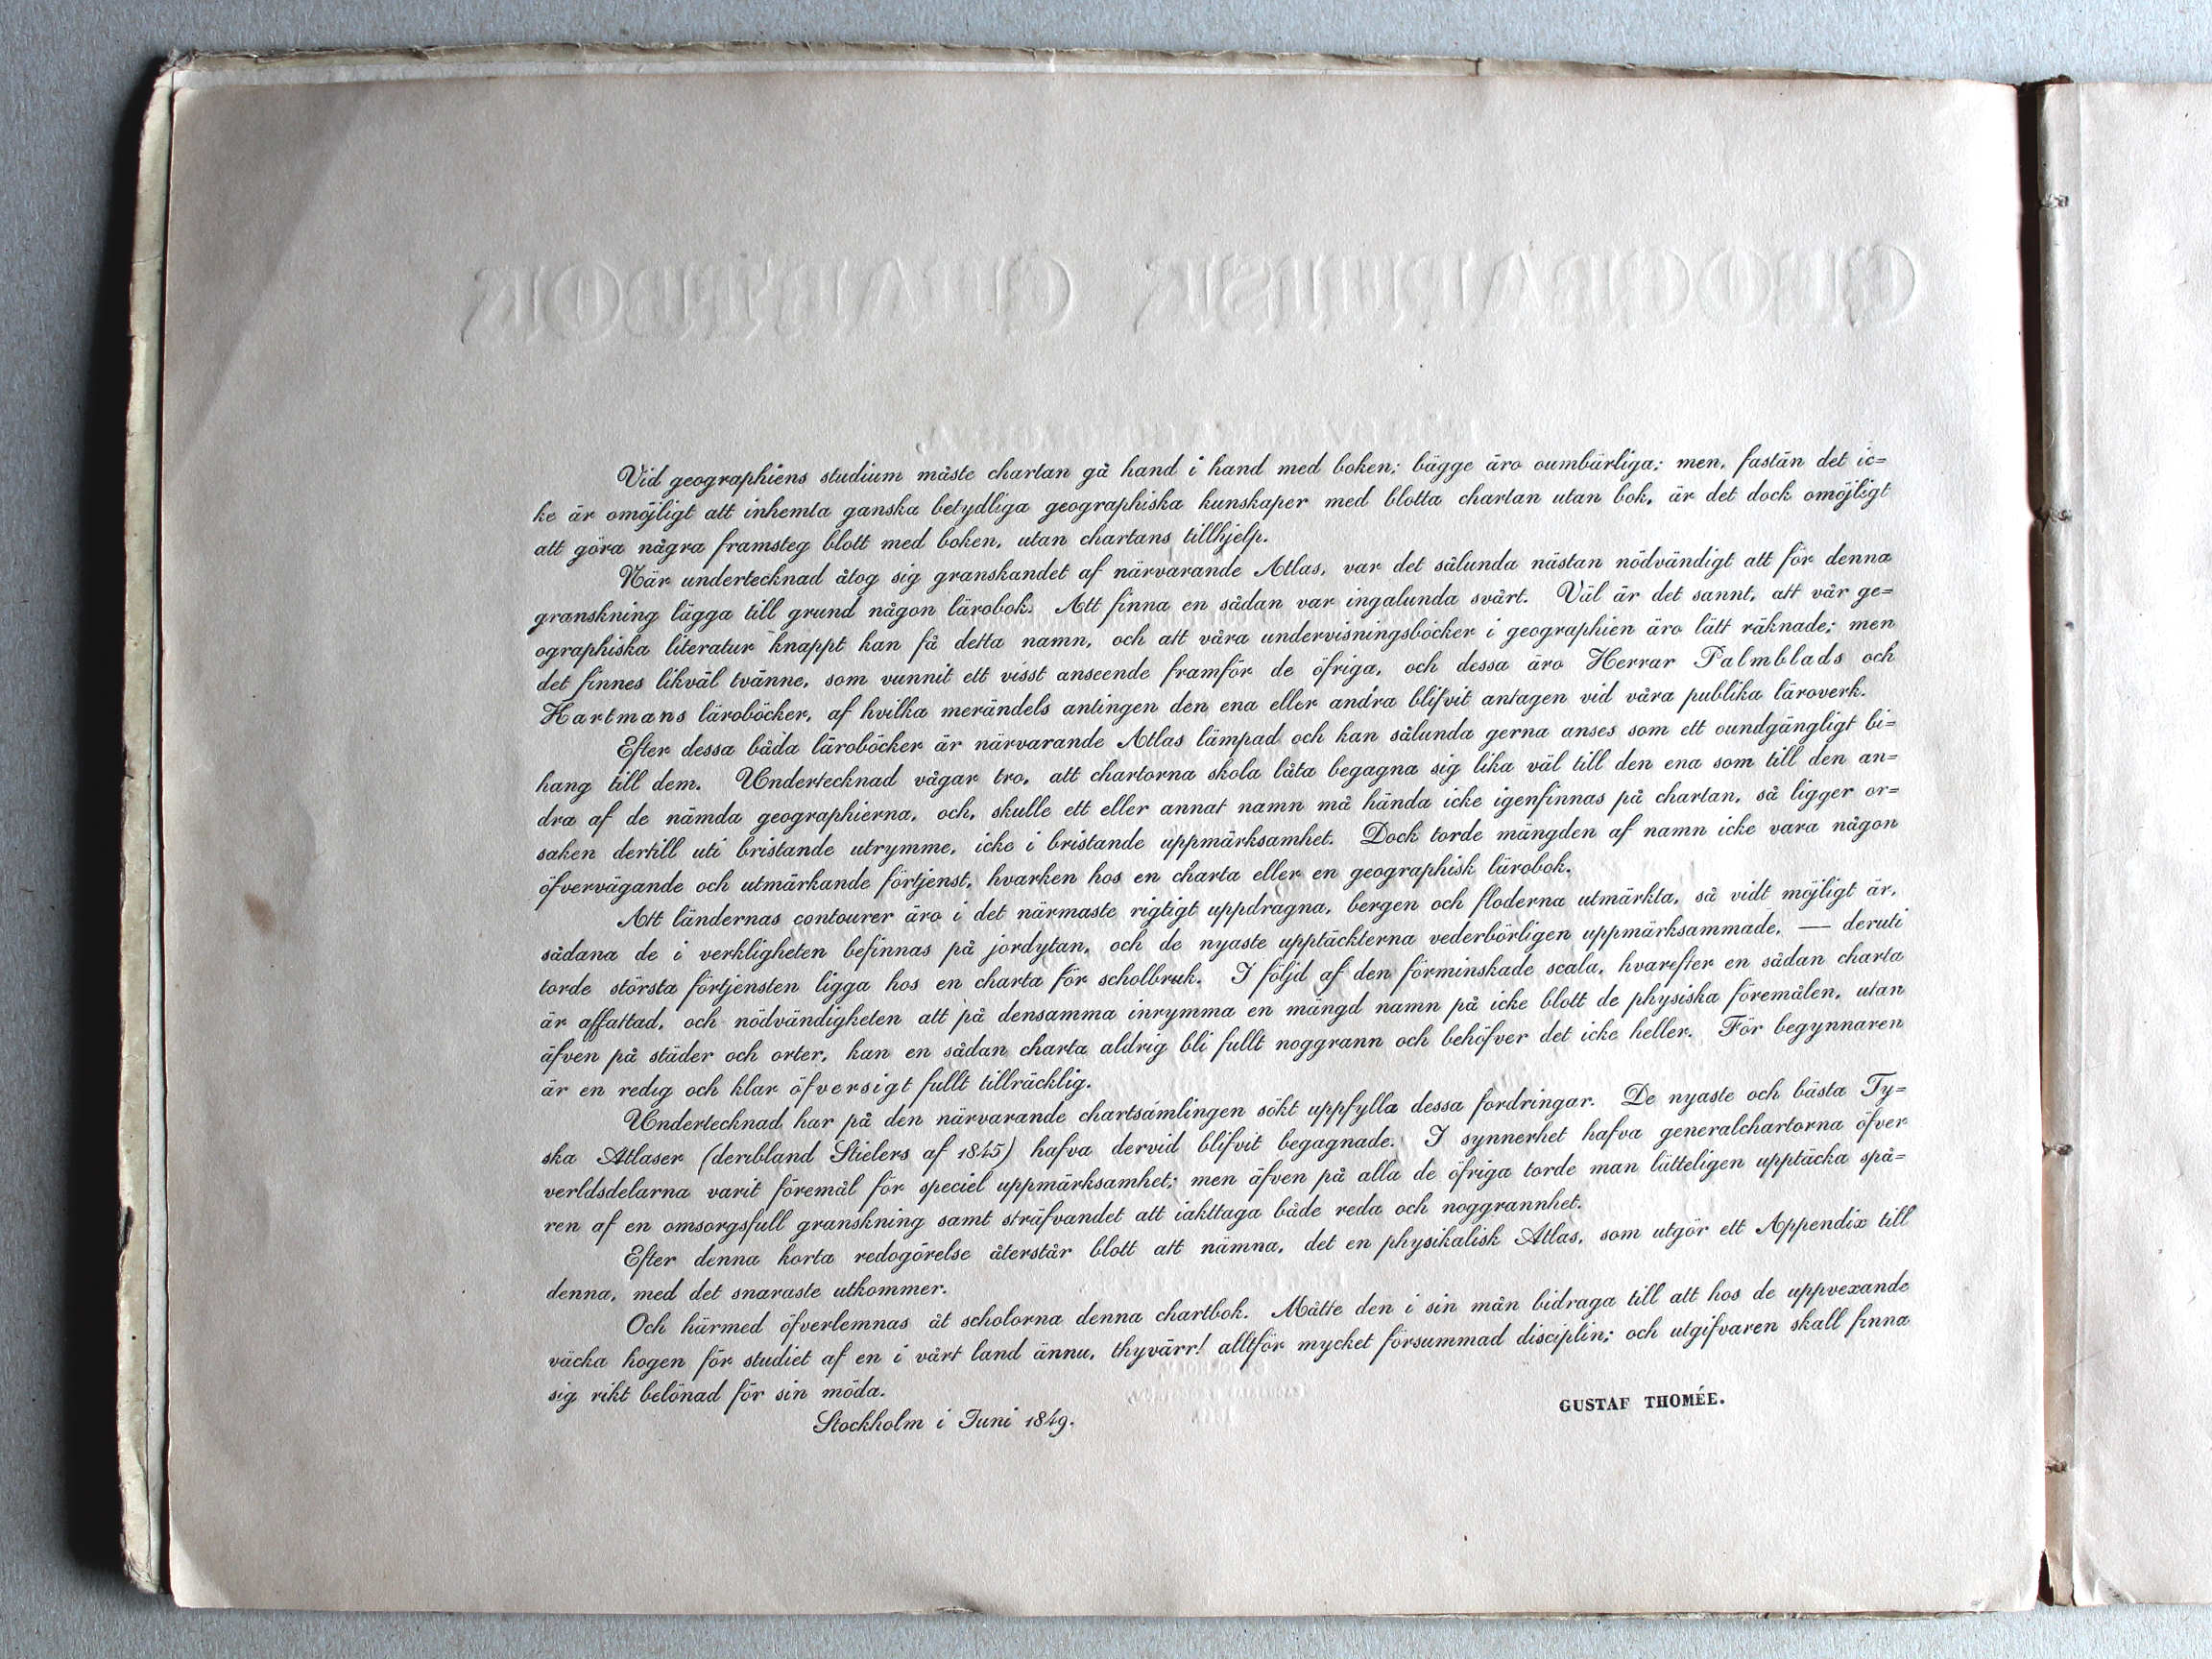 Vid geographiens studium måste chartan gå hand i hand med boken; bägge äro oumbärliga; men, fastän det ic=
ke är omöjligt att inhemta ganska betydliga geographiska kunskaper med blotta chartan utan bok, är det dock omöjligt
att göra några framsteg blott med boken, utan chartans tillhjelp.
När undertecknad åtog sig granskandet af närvarande Atlas, var det sålunda nästan nödvändigt att för denna
granskning lägga till grund någon lärobok. Att finna en sådan var ingalunda svårt. Väl är det sannt, att vår ge=
ographiska literatur knappt kan få detta namn, och att våra undervisningsböcker i geographien äro lätt räknade; men
det finnes likväl tvänne, som vunnit ett visst anseende framför de öfriga, och dessa äro Herrar Palmblads och
Hartmans läroböcker, af hvilka merändels antingen den ena eller andra blifvit antagen vid våra publika läroverk.
Efter dessa båda läroböcker är närvarande Atlas lämpad och kan sålunda gerna anses som ett oundgängligt bi=
hang till dem. Undertecknad vågar tro, att chartorna skola låta begagna sig lika väl till den ena som till den an=
dra af de nämda geographierna, och, skulle ett eller annat namn må hända icke igenfinnas på chartan, så ligger or=
saken dertill uti bristande utrymme, icke i bristande uppmärksamhet. Dock torde mängden af namn icke vara någon
öfvervägande och utmärkande förtjenst, hvarken hos en charta eller en geographisk lärobok.
Att ländernas contourer äro i det närmaste rigtigt uppdragna, bergen och floderna utmärkta, så vidt möjligt är,
sådana de i verkligheten befinnas på jordytan, och de nyaste upptäckterna vederbörligen uppmärksammade, — deruti
torde största förtjensten ligga hos en charta för scholbruk. I följd af den förminskade scala, hvarefter en sådan charta
är affattad, och nödvändigheten att på densamma inrymma en mängd namn på icke blott de physiska föremålen, utan
äfven på städer och orter, kan en sådan charta aldrig bli fullt noggrann och behöfver det icke heller. För begynnaren
är en redig och klar öfversigt fullt tillräcklig.
Undertecknad har på den närvarande chartsamlingen sökt uppfylla dessa fordringar. De nyaste och bästa Ty=
ska Atlaser (deribland Stielers af 1845) hafva dervid blifvit begagnade. I synnerhet hafva generalchartorna öfver
verldsdelarna varit föremål för speciel uppmärksamhet; men äfven på alla de öfriga torde man lätteligen upptäcka spå=
ren af en omsorgsfull granskning samt sträfvandet att iakttaga både reda och noggrannhet.
Efter denna korta redogörelse återstår blott att nämna, det en physikalisk Atlas, som utgör ett Appendix till
denna, med det snaraste utkommer.
Och härmed öfverlemnas åt scholorna denna chartbok. Måtte den i sin mån bidraga till att hos de uppvexande
väcka hogen för studiet af en i vårt land ännu, thyvärr! alltför mycket försummad disciplin; och utgifvaren skall finna
sig rikt belönad för sin möda.
Stockholm i Juni 1849.
GUSTAF THOMÉE.